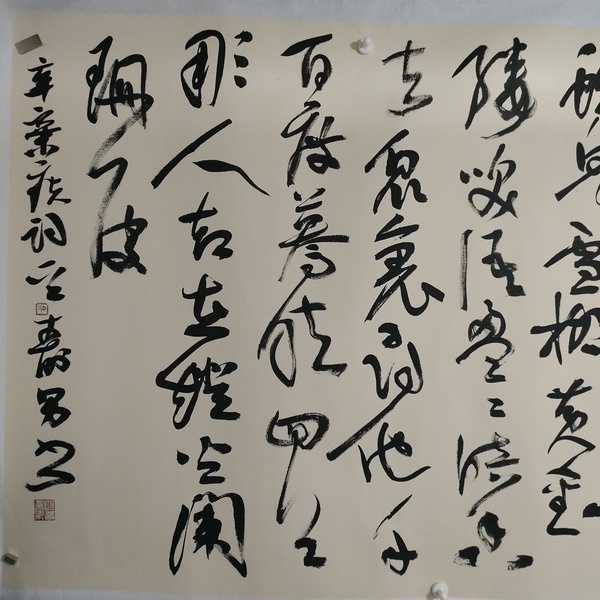 蛾兒雪柳黄金
縷笑語盈〻暗香
去衆裏尋他千
百度驀然回首
那人却在燈火闌
珊處
辛棄疾詞 壽男書